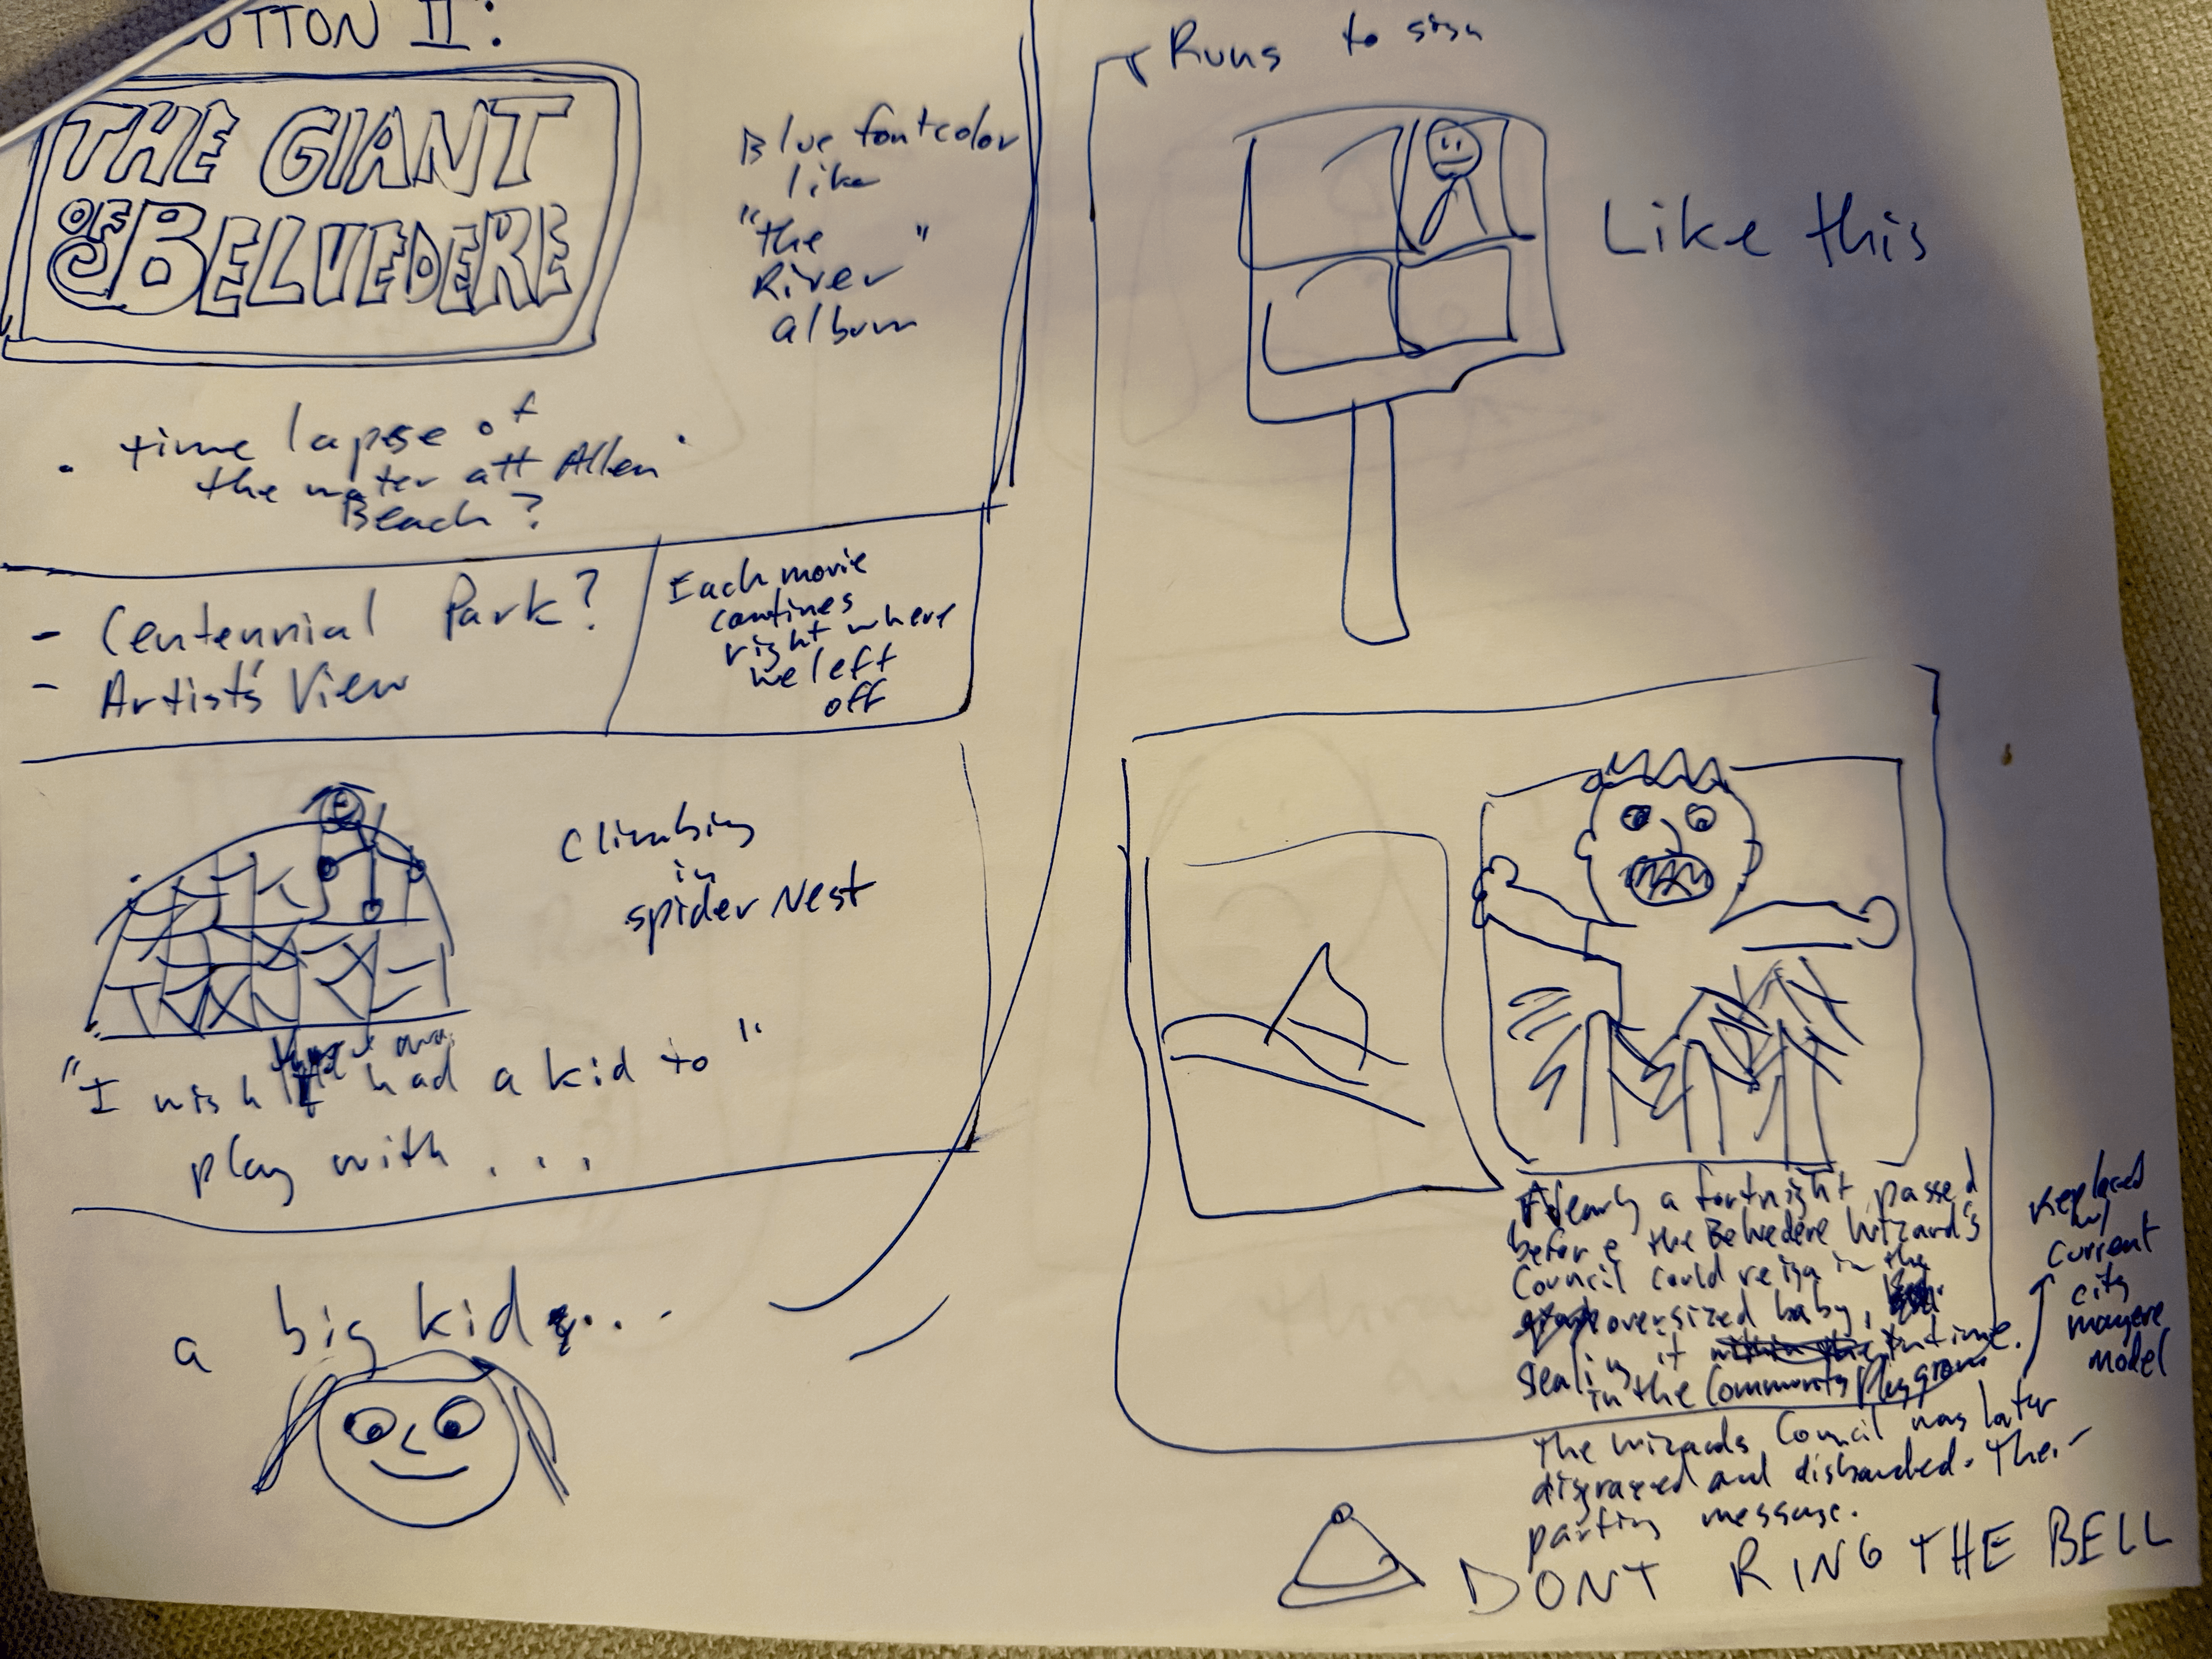 UTTON II:
THE GIANT
OF BELVEDERE
Blue fontcolor
like
"the "
River
album
. time lapse of
the water att Allen
Beach?
- Centennial Park?
- Artist's View
Each movie
contines
right where
we left
off
Climbing
in
spider Nest
"I wish I had a kid to"
play with ...
a big kid ...
Runs to sign
Like this
Nearly a fortnight passed
before the Belvedere Wizard's
Council could reign in the
oversized baby,
sealing it in time.
in the Community Playground
Replaced
w/
current
city
mayere
model
The wizards Council was later
disgraced and disbanded. Their
parting message.
DONT RING THE BELL